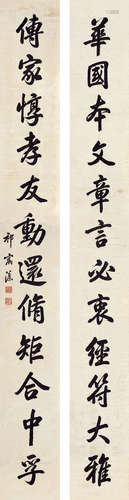 華國本文章言必衷經符大雅
傳家惇孝友動還脩矩合中孚
祁寯藻